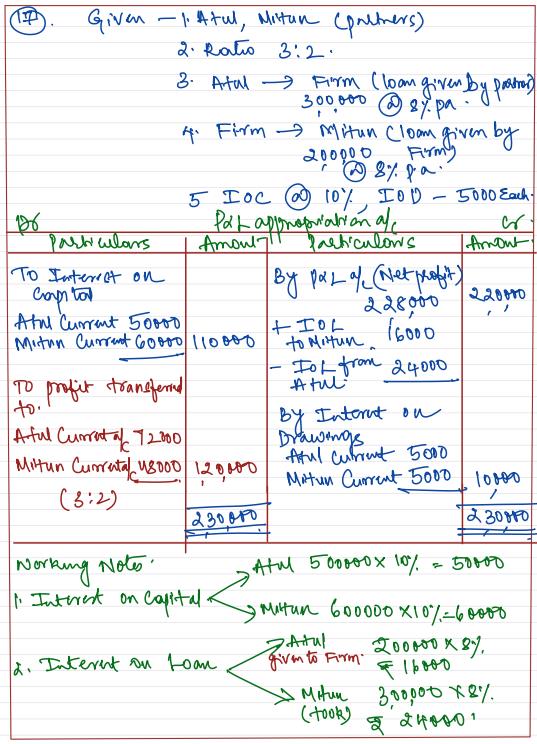 17. Given - 1. Atul, Mitun (partners)
2. Ratio 3:2.
3. Atul → Firm (loan given by partner)
300,000 @ 8% pa.
4. Firm → Mitun (loan given by
200,000 Firm)
@ 8% p.a.
5 IOC @ 10%, IOD - 5000 Each.
Dr P&L appropriation a/c Cr
Particulars Amount Particulars Amount
To Interest on
Capital
Atul Current 50000
Mitun Current 60000 110000
To profit transferred
to.
Atul Current a/c 72000
Mitun Current a/c 48000 120,000
(3:2)
230,000
By P&L a/c (Net profit) 220000
228,000
+ IOL 16000
to Mitun.
- IOL from 24000
Atul.
By Interest on
Drawings
Atul Current 5000
Mitun Current 5000 10000
230000
Working Notes.
1. Interest on Capital
Atul 500000 × 10% = 50000
Mitun 600000 × 10% = 60000
2. Interest on Loan
Atul 200000 × 8%
given to Firm. ₹ 16000
Mitun 3,00,000 × 8%.
(took) ₹ 24000.